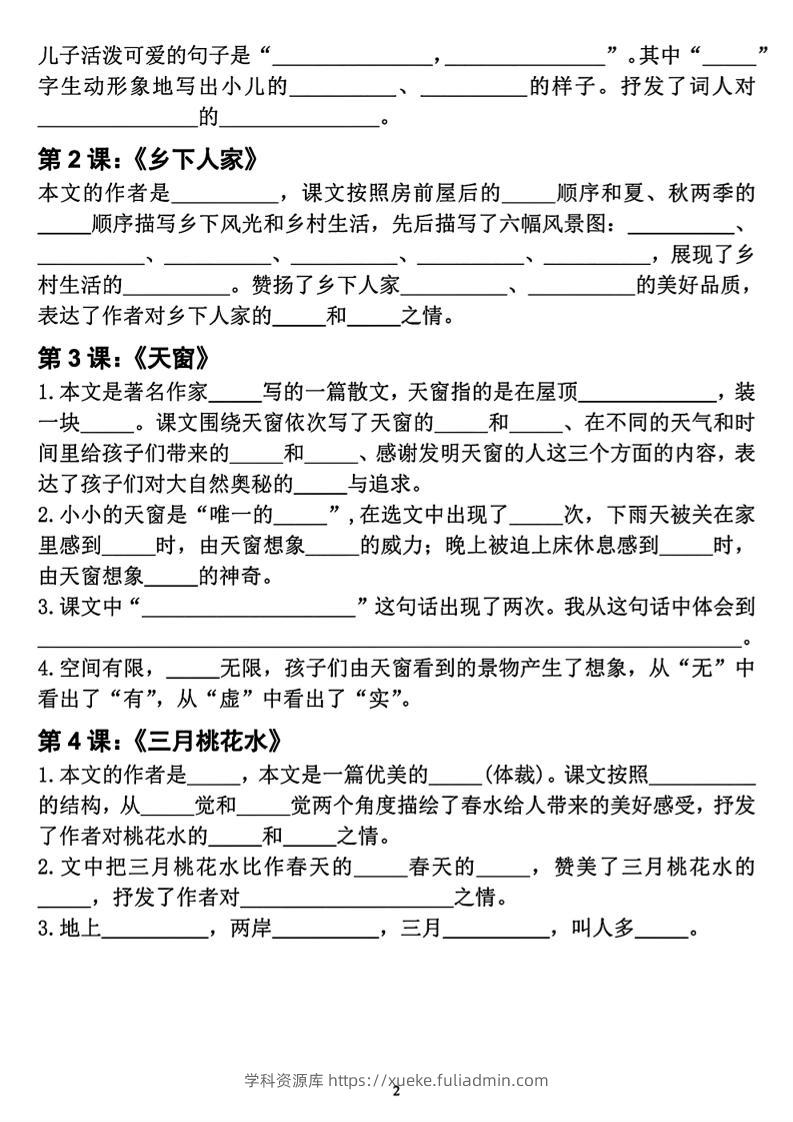 儿子活泼可爱的句子是“_______________，_______________”。其中“_____”
字生动形象地写出小儿的__________、__________的样子。抒发了词人对
_______________的_______________。
第 2 课：《乡下人家》
本文的作者是__________，课文按照房前屋后的_____顺序和夏、秋两季的
_____顺序描写乡下风光和乡村生活，先后描写了六幅风景图：__________、
__________、__________、__________、__________、__________，展现了乡
村生活的__________。赞扬了乡下人家__________、__________的美好品质，
表达了作者对乡下人家的_____和_____之情。
第 3 课：《天窗》
1.本文是著名作家_____写的一篇散文，天窗指的是在屋顶_____________，装
一块_____。课文围绕天窗依次写了天窗的_____和_____、在不同的天气和时
间里给孩子们带来的_____和_____、感谢发明天窗的人这三个方面的内容，表
达了孩子们对大自然奥秘的_____与追求。
2.小小的天窗是“唯一的_____”,在选文中出现了_____次，下雨天被关在家
里感到_____时，由天窗想象_____的威力；晚上被迫上床休息感到_____时，
由天窗想象_____的神奇。
3.课文中“____________________”这句话出现了两次。我从这句话中体会到
__________________________________________________________________。
4.空间有限，_____无限，孩子们由天窗看到的景物产生了想象，从“无”中
看出了“有”，从“虚”中看出了“实”。
第 4 课：《三月桃花水》
1.本文的作者是_____，本文是一篇优美的_____(体裁)。课文按照__________
的结构，从_____觉和_____觉两个角度描绘了春水给人带来的美好感受，抒发
了作者对桃花水的_____和_____之情。
2.文中把三月桃花水比作春天的_____春天的_____，赞美了三月桃花水的
_____，抒发了作者对____________________之情。
3.地上__________，两岸__________，三月__________，叫人多_____。
学科资源库 https://xueke.fuliadmin.com
2